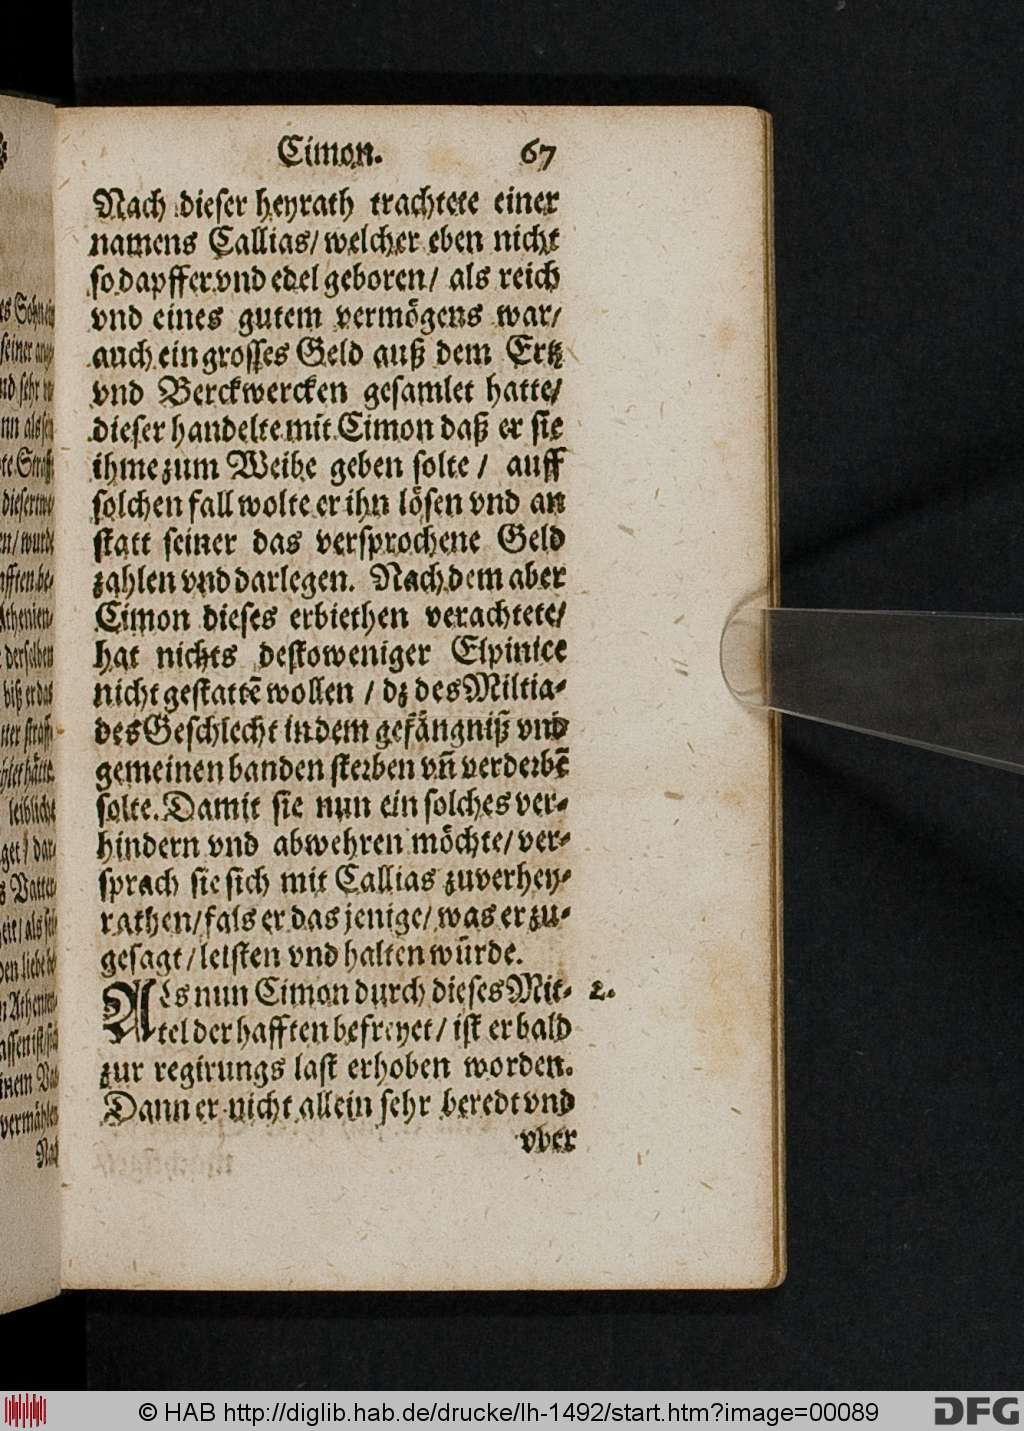 Cimon. 67
Nach dieser heyrath trachtete einer
namens Callias/ welcher eben nicht
so dapffer vnd edel geboren/ als reich
vnd eines gutem vermögens war/
auch ein grosses Geld auß dem Ertz
vnd Berckwercken gesamlet hatte/
dieser handelte mit Cimon daß er sie
ihme zum Weibe geben solte / auff
solchen fall wolte er ihn lösen vnd an
statt seiner das versprochene Geld
zahlen vnd darlegen. Nachdem aber
Cimon dieses erbiethen verachtete/
hat nichts destoweniger Elpinice
nicht gestattē wollen / dz des Miltia-
des Geschlecht in dem gefängniß vnd
gemeinen banden sterben vn̄ verderbē
solte. Damit sie nun ein solches ver-
hindern vnd abwehren möchte/ ver-
sprach sie sich mit Callias zuverhey-
rathen/ fals er das jenige/ was er zu-
gesagt/ leisten vnd halten würde.
Als nun Cimon durch dieses Mit- 2.
tel der hafften befreyet/ ist er bald
zur regirungs last erhoben worden.
Dann er nicht allein sehr beredt vnd
vber
© HAB http://diglib.hab.de/drucke/lh-1492/start.htm?image=00089
DFG